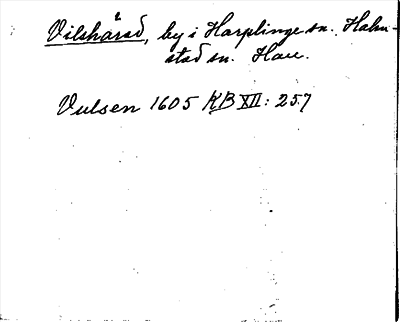 Vilshärad, by i Harplinge sn. Halm-
stad sn. Hall.
Vulsen 1605 KB XII: 257